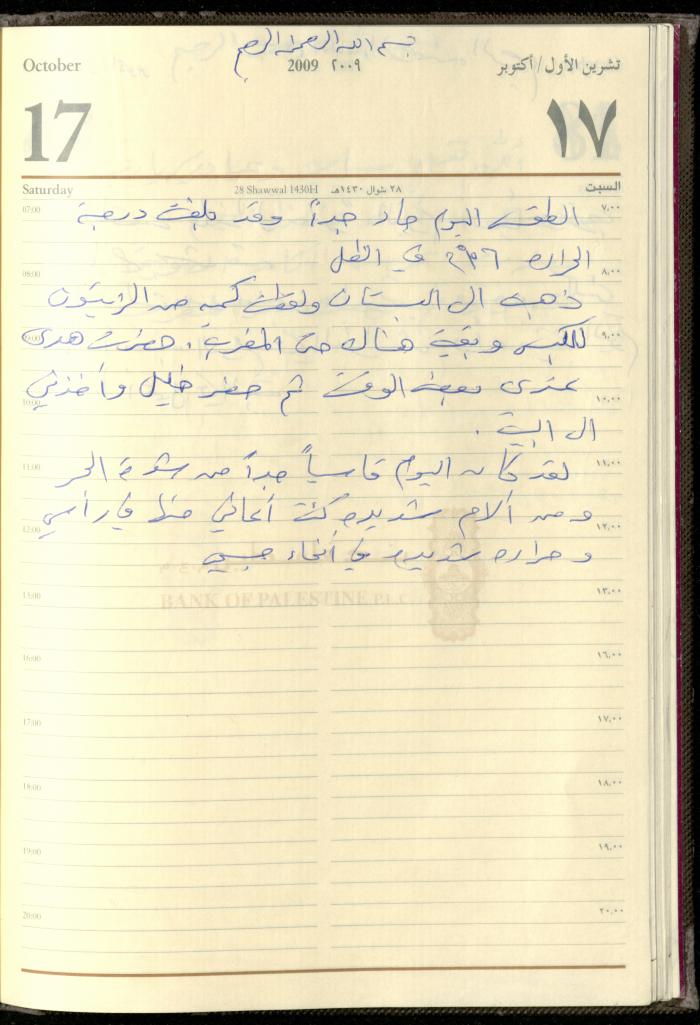 بسم الله الرحمن الرحيم
October 2009 ٢٠٠٩ تشرين الأول/ أكتوبر
17 ١٧
Saturday 28 Shawwal 1430H ٢٨ شوال ١٤٣٠هـ السبت
07:00 ٧,٠٠
الطقس اليوم حار جداً وقد بلغت درجة
الحراره في الظل
08:00 ٨,٠٠
ذهبت الى البستان ولقطت كميه من الزيتون
للكبس وبقيت هناك حتى المغرب، حضرت هدى
09:00 ٩,٠٠
عندي بعض الوقت ثم حضر خليل وأخذني
10:00 ١٠,٠٠
الى البيت .
11:00 ١١,٠٠
لقد كان اليوم قاسياً جداً من شدة الحر
ومن آلام شديده كنت أعاني منها في رأسي
12:00 ١٢,٠٠
و حراره شديده في أنحاء جسمي
13:00 ١٣,٠٠
BANK OF PALESTINE P.L.C
16:00 ١٦,٠٠
17:00 ١٧,٠٠
18:00 ١٨,٠٠
19:00 ١٩,٠٠
20:00 ٢٠,٠٠